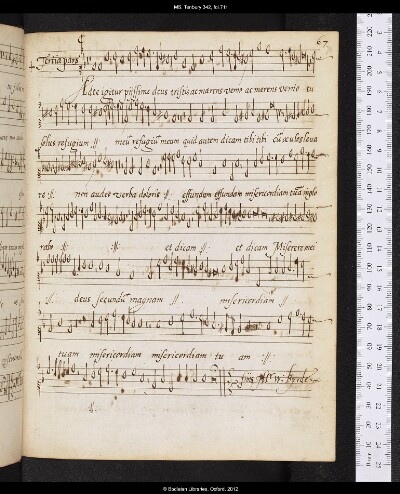 MS. Tenbury 342, fol.71r
67
Tertia pars
Ad te igitur piissime deus tristis ac merens venio ac merens venio tu
solus refugium :||: meū refugiū meum quid autem dicam tibi tibi cū oculos leva
re :||: non audeo verba doloris :||: effundam effundam misericordiam tuā implo
rabo :||: :||: et dicam :||: et dicam Miserere mei
:||: deus secundū magnam :||: misericordiam :||:
tuam misericordiam misericordiam tu am :||:
finis Mr W. Byrde
© Bodleian Libraries, Oxford, 2012